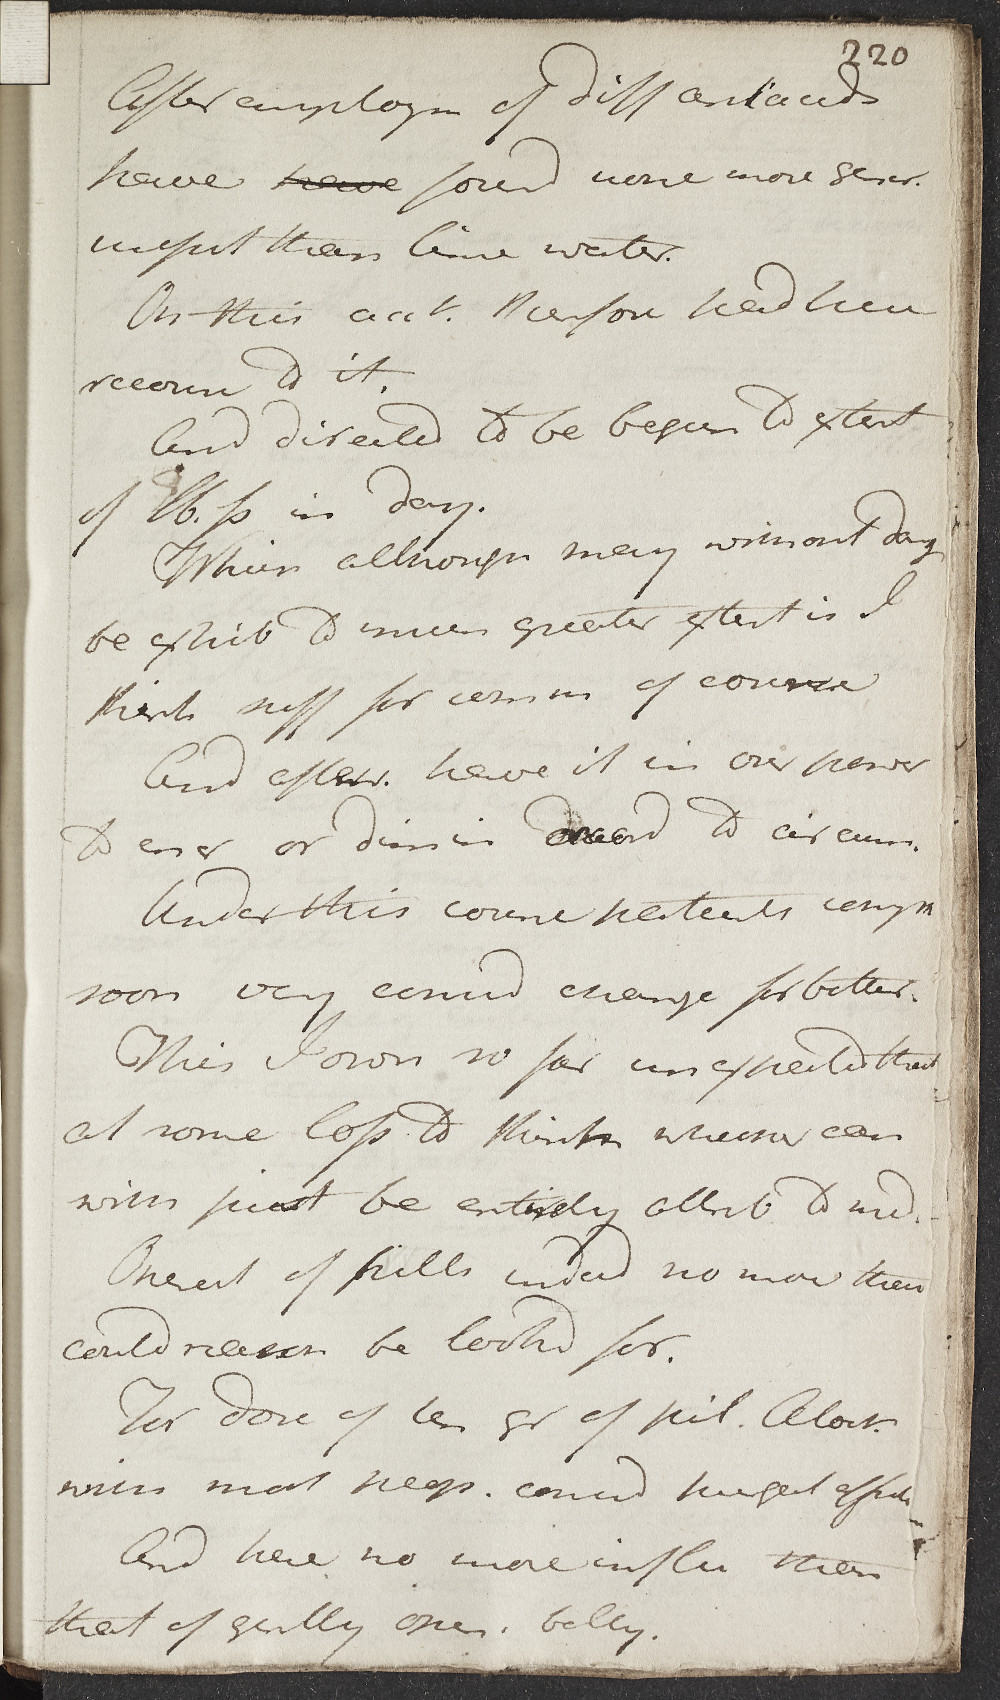 220
After employm of diff antacids
have have found none more gener.
useful than lime water.
On this acct. therefore had here
recourse to it.
And directed to be begun to extent
of lb. ss in day.
Which although may without dang
be exhib to much greater extent is I
think suff for comm of course
And afterw. have it in our power
to encr or dimin accord to circum.
Under this course patients comp
soon very consid change for better.
This I own so far unexpected that
at some loss to think whether can
with just be entirely attrib to med.
Operat of pills indeed no more than
could reason be looked for.
For dose of ten gr of pil. Aloet.
with most peop. consid purgat effects
And here no more influ than
that of gently open. belly.